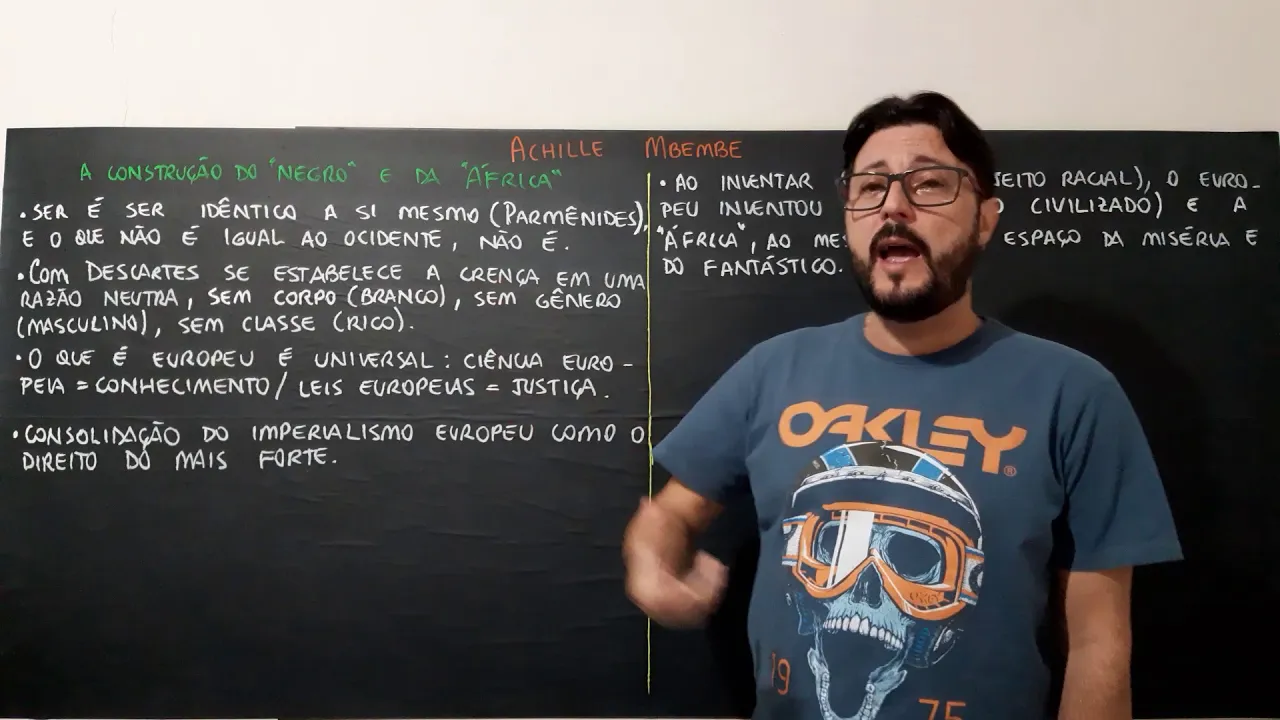 ACHILLE MBEMBE
A CONSTRUÇÃO DO "NEGRO" E DA "ÁFRICA"
• SER É SER IDÊNTICO A SI MESMO (PARMÊNIDES),
E O QUE NÃO É IGUAL AO OCIDENTE, NÃO É.
• COM DESCARTES SE ESTABELECE A CRENÇA EM UMA
RAZÃO NEUTRA, SEM CORPO (BRANCO), SEM GÊNERO
(MASCULINO), SEM CLASSE (RICO).
• O QUE É EUROPEU É UNIVERSAL: CIÊNCIA EURO-
PEIA = CONHECIMENTO / LEIS EUROPEIAS = JUSTIÇA.
• CONSOLIDAÇÃO DO IMPERIALISMO EUROPEU COMO O
DIREITO DO MAIS FORTE.
• AO INVENTAR JEITO RACIAL), O EURO-
PEU INVENTOU CIVILIZADO) E A
"ÁFRICA", AO ESPAÇO DA MISÉRIA E
DO FANTÁSTICO.
OAKLEY®
19
75